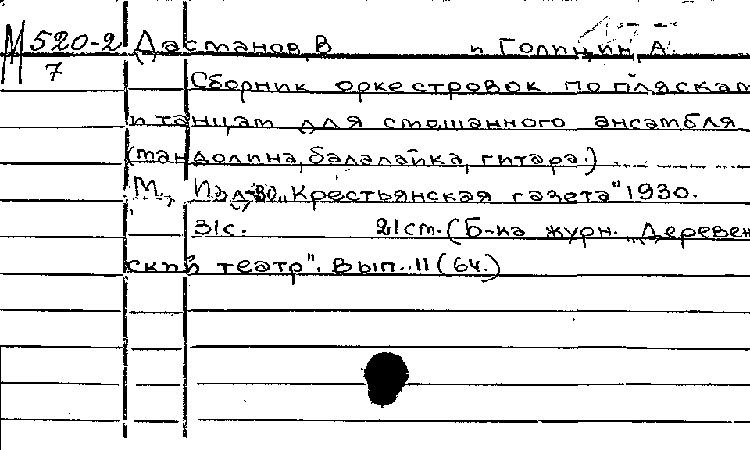 М 520-2 Дасманов, В и Голицин, А.
7 Сборник оркестровок по пляскам
и танцам для смешанного ансамбля
(мандолина, балалайка, гитара.)
М., Изд-во "Крестьянская газета" 1930.
31с. 21см. (Б-ка журн. "Деревен
ский театр". Вып. 11 (64.)